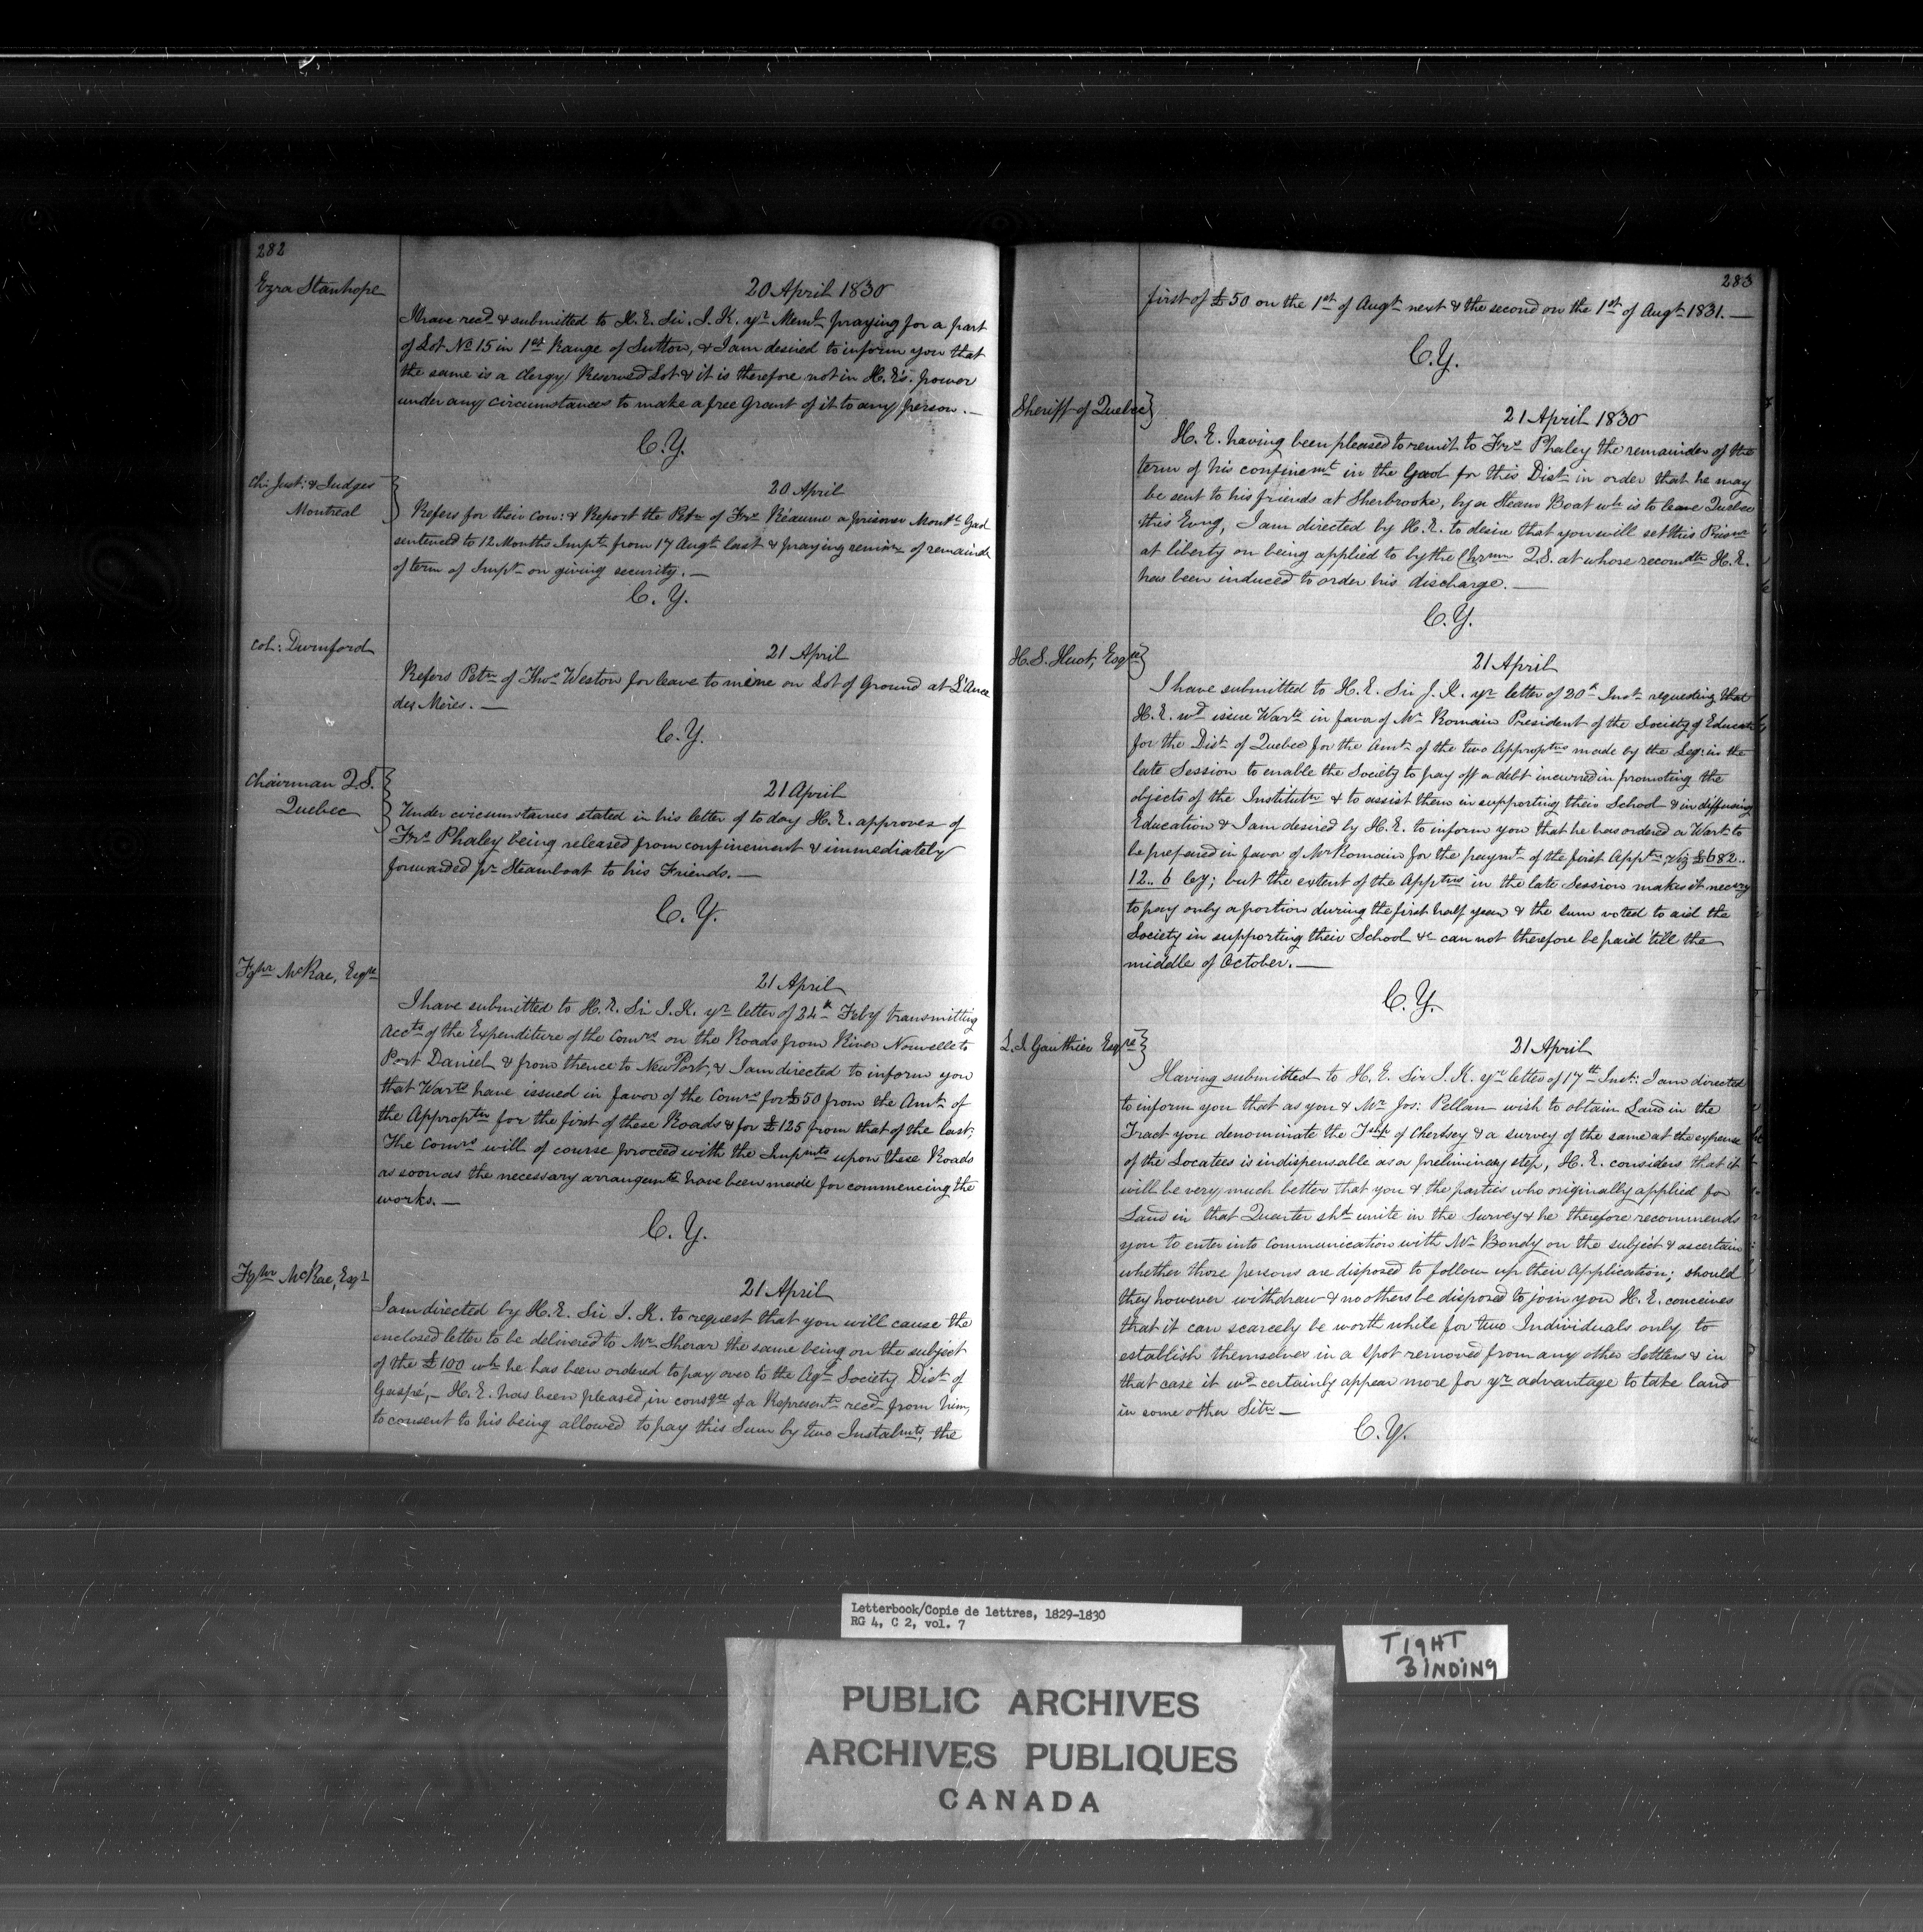 282
Ezra Stanhope
20 April 1830
I have recd. & submitted to H.E. Sir. J. K. yr. Meml. praying for a part
of Lot No 15 in 1st Range of Sutton, & I am desired to inform you that
the same is a Clergy Reserved Lot & it is therefore not in H. E's. power
under any circumstances to make a free Grant of it to any person. —
C. Y.
Ch: Just: & Judges
Montreal
20 April
Refers for their Con: & Report the Petn. of Frs. Réaume a prisoner Montl. Gaol
sentenced to 12 Months Impt. from 17 Augt. last & praying remisn. of remaindr.
of term of Impt. on giving security. —
C. Y.
Col: Durnford
21 April
Refers Petn. of Thos. Weston for leave to mine on Lot of Ground at L'Ance
des Mères. —
C. Y.
Chairman Q.S.
Quebec
21 April
Under circumstances stated in his letter of to day H. E. approves of
Frs. Phaley being released from confinement & immediately
forwarded pr. Steamboat to his Friends. —
C. Y.
Fghr. McRae, Esqre.
21 April
I have submitted to H. E. Sir J. K. yr. letter of 24th Feby transmitting
Accts. of the Expenditure of the Comrs. on the Roads from River Nouvelle to
Port Daniel & from thence to New Port, & I am directed to inform you
that Warts. have issued in favor of the Comrs. for £50 from the Amt. of
the Approptn. for the first of these Roads & for £125 from that of the last;
The Comrs. will of course proceed with the Impmts. upon these Roads
as soon as the necessary arrangemts. have been made for commencing the
works. —
C. Y.
Fghr. McRae, Esqr.
21 April
I am directed by H. E. Sir J. K. to request that you will cause the
enclosed letter to be delivered to Mr. Sherar the same being on the subject
of the £100 wh. he has been ordered to pay over to the Agl. Society Dist. of
Gaspé, — H. E. has been pleased, in consqce. of a Representn. recd. from him,
to consent to his being allowed to pay this Sum by two Instalmts., the
283
first of £50 on the 1st of Augt. next & the second on the 1st of Augt. 1831. —
C. Y.
Sheriff of Quebec
21 April 1830
H. E. having been pleased to remit to Frs. Phaley the remainder of the
term of his confinemt. in the Gaol for this Dist. in order that he may
be sent to his friends at Sherbrooke, by a Steam Boat wh. is to leave Quebec
this Eveng, I am directed by H. E. to desire that you will set this Prisonr.
at liberty on being applied to by the Chrmn. Q. S. at whose recomdtn. H. E.
has been induced to order his discharge. —
C. Y.
H. S. Huot, Esqre.
21 April
I have submitted to H. E. Sir J. K. yr. letter of 20th Inst. requesting that
H. E. wd. issue Wart. in favor of Mr. Romain President of the Society of Educatn.
for the Dist. of Quebec for the Amt. of the two Approptns. made by the Leg: in the
late Session to enable the Society to pay off a debt incurred in promoting the
objects of the Institutn. & to assist them in supporting their School & in diffusing
Education & I am desired by H. E. to inform you that he has ordered a Wart. to
be prepared in favor of Mr Romain for the paymt. of the first Apptn. Viz £682..
12.. 6 Cy; but the extent of the Apptns. in the late Session makes it necesry
to pay only a portion during the first half year & the sum voted to aid the
Society in supporting their School &c can not therefore be paid till the
middle of October. —
C. Y.
L. J. Gauthier Esqre.
21 April
Having submitted to H. E. Sir J. K. yr. letter of 17th Inst: I am directed
to inform you that as you & Mr. Jos: Pellan wish to obtain Land in the
Tract you denominate the Tshp of Chertsey & a survey of the same at the expense
of the Locatees is indispensable as a preliminary step, H. E. considers that it
will be very much better that you & the parties who originally applied for
Land in that Quarter shd. unite in the Survey & he therefore recommends
you to enter into Communication with Mr. Bondy on the subject & ascertain
whether those persons are disposed to follow up their Application; should
they however withdraw & no others be disposed to join you H. E. conceives
that it can scarcely be worth while for two Individuals only to
establish themselves in a spot removed from any other Settlers & in
that case it wd. certainly appear more for yr. advantage to take land
in some other Sitn. —
C. Y.
Letterbook/Copie de lettres, 1829-1830
RG 4, C 2, vol. 7
TIGHT
BINDING
PUBLIC ARCHIVES
ARCHIVES PUBLIQUES
CANADA